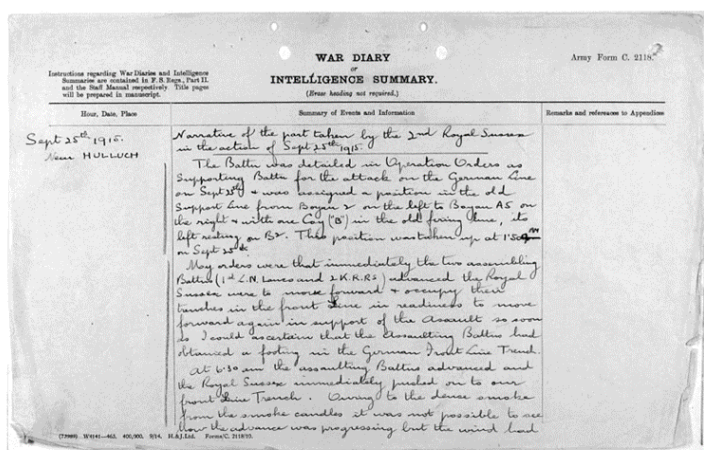 WAR DIARY
or
INTELLIGENCE SUMMARY.
(Erase heading not required.)
Army Form C. 2118.
Instructions regarding War Diaries and Intelligence
Summaries are contained in F. S. Regs., Part II.
and the Staff Manual respectively. Title pages
will be prepared in manuscript.
Hour, Date, Place
Summary of Events and Information
Remarks and references to Appendices
Sept 25th, 1915.
Near HULLUCH
Narrative of the part taken by the 2nd Royal Sussex
in the action of Sept 25th 1915.
The Battn was detailed in Operation Orders as
Supporting Battn for the attack on the German Line
on Sept 25th & was assigned a position in the old
Support Line from Boyau 2 on the left to Boyau A5 on
the right & with one Coy ("B") in the old firing line, its
left resting on B2. This position was taken up at 1.30
on Sept 25th.
My orders were that immediately the two assembling
Battns (1st L.N. Lancs and 2 K.R.Rs) advanced the Royal
Sussex were to move forward & occupy their
trenches in the front line in readiness to move
forward again in support of the Assault so soon
as I could ascertain that the Assaulting Battns had
obtained a footing in the German Front Line Trench.
At 6.30 am the assaulting Battns advanced and
the Royal Sussex immediately pushed on to our
front line Trench. Owing to the dense smoke
from the smoke candles it was not possible to see
how the advance was progressing but the wind had
(73989) W4141—463. 400,000. 9/14. H.&J.Ltd. Forms/C. 2118/10.